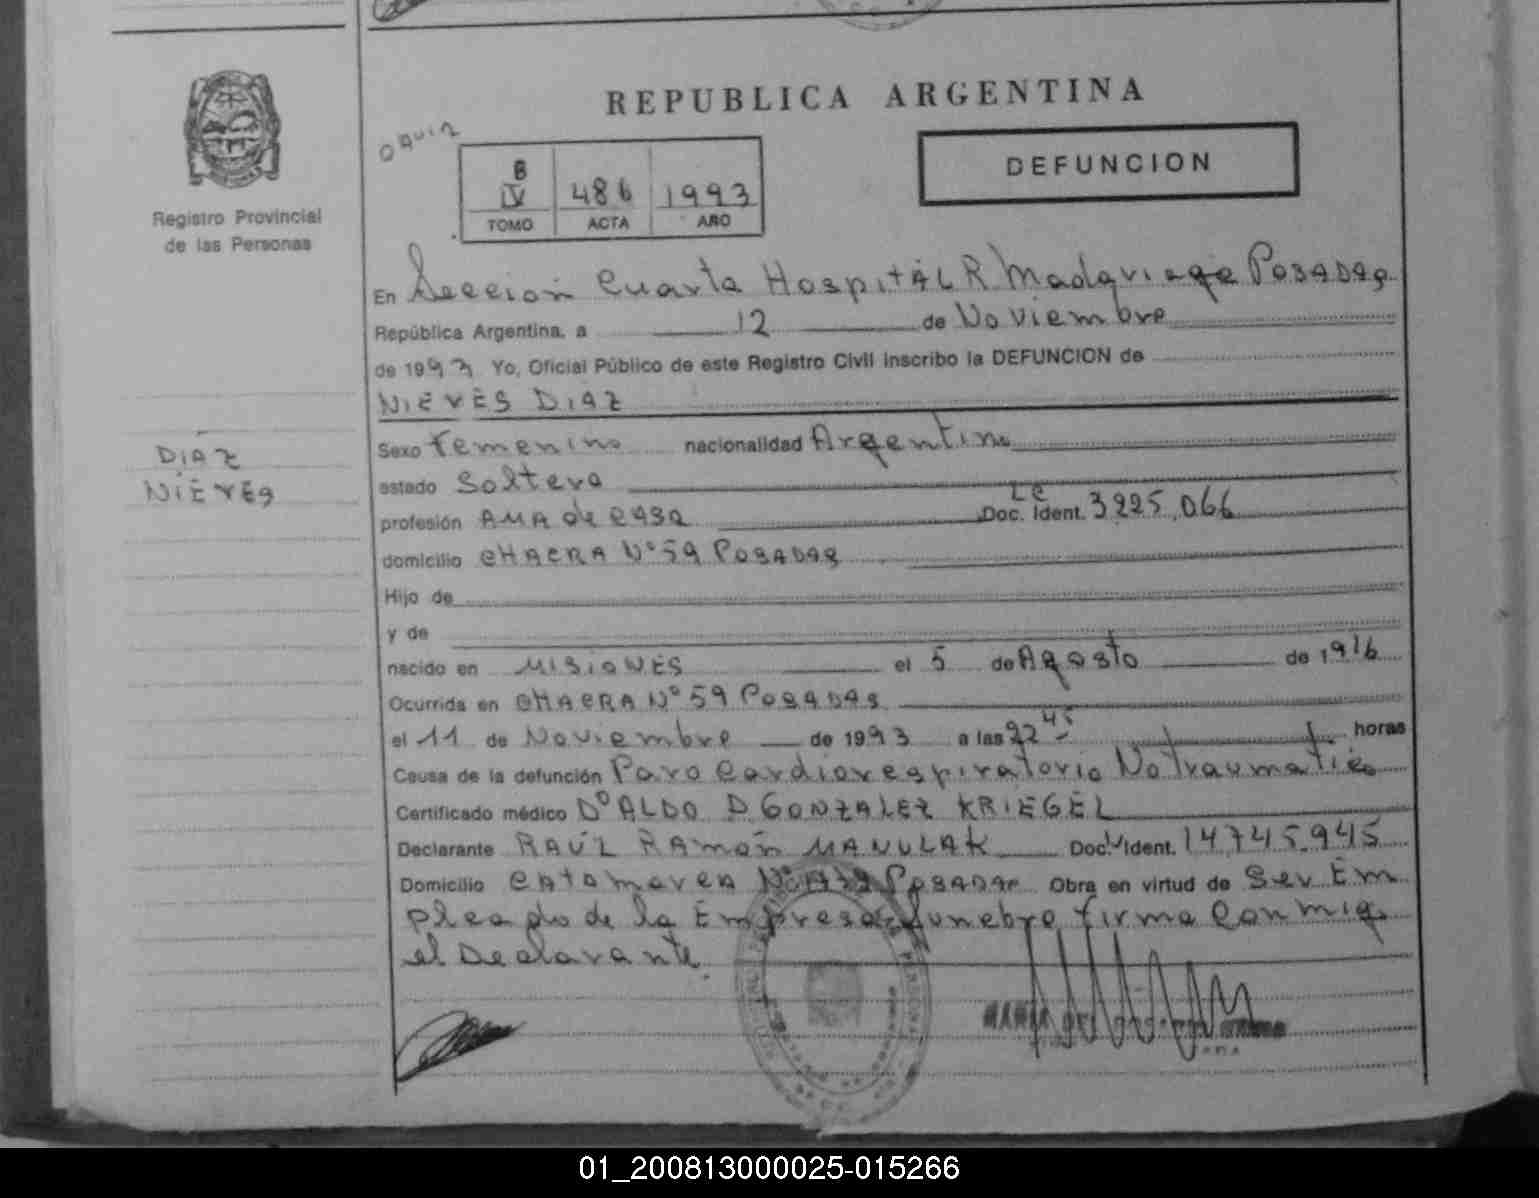 REPUBLICA ARGENTINA
DEFUNCION
Registro Provincial
de las Personas
B
IV 486 1993
TOMO ACTA AÑO
En Sección Cuarta Hospital R Madariaga Posadas
República Argentina, a 12 de Noviembre
de 1993 Yo, Oficial Público de este Registro Civil inscribo la DEFUNCION de
NIEVES DIAZ
DIAZ
NIEVES
Sexo Femenino nacionalidad Argentina
estado Soltera
LC
profesión AMA de CASA Doc. Ident. 3225.066
domicilio CHACRA Nº 59 POSADAS
Hijo de
y de
nacido en MISIONES el 5 de Agosto de 1916
Ocurrida en CHACRA Nº 59 POSADAS
el 11 de Noviembre de 1993 a las 22 45 horas
Causa de la defunción Paro Cardiorespiratorio No traumatico
Certificado médico Dº ALDO D. GONZALEZ KRIEGEL
Declarante RAÚL RAMÓN MANULAK Doc. Ident. 14.745.945
Domicilio CATAMARCA Nº POSADAS Obra en virtud de Ser Em
pleado de la Empresa funebre firma Conmigo
el Declarante.
01_200813000025-015266